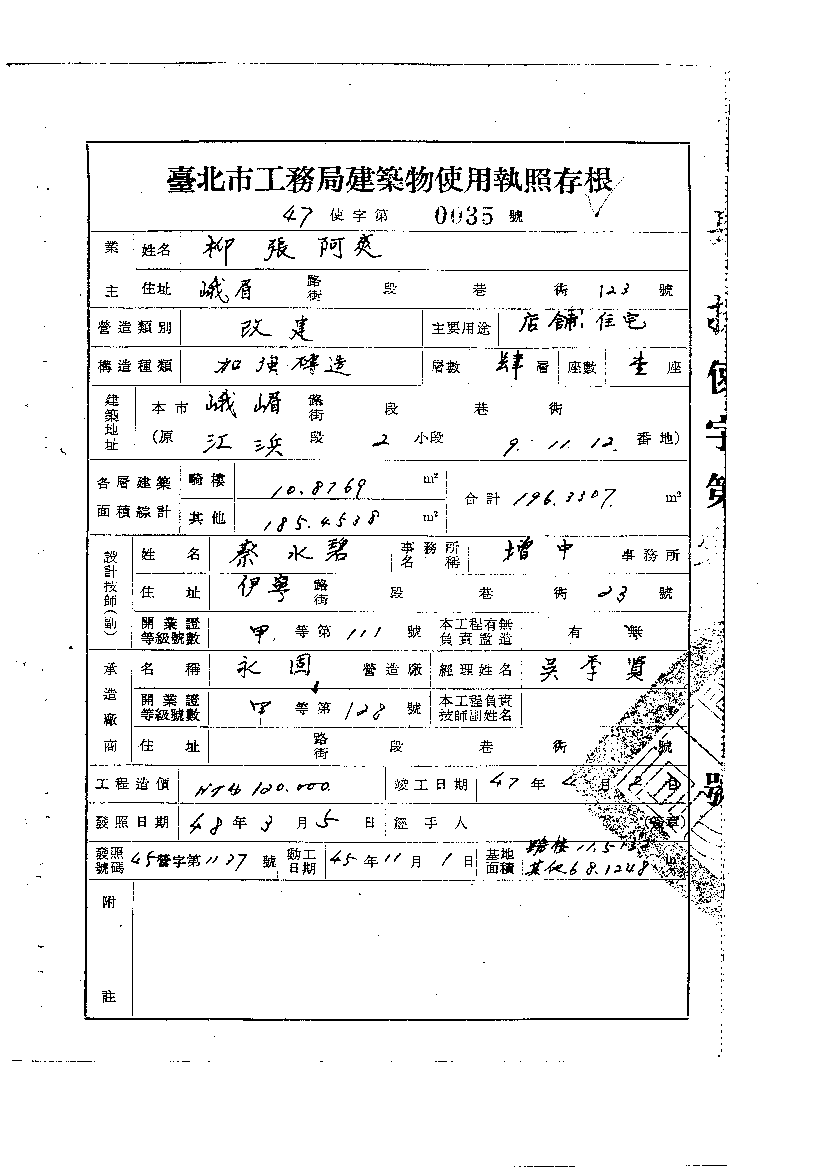 臺北市工務局建築物使用執照存根
47 使字第 0035 號
業主 姓名 柳張阿爽
住址 峨眉 路街 段 巷 街 123 號
營造類別 改建 主要用途 店舖.住宅
構造種類 加強磚造 層數 肆 層 座數 壹 座
建築地址 本市 峨嵋 路街 段 巷 街
(原 江浜 段 2 小段 9. 11. 12. 番地)
各層建築面積綜計 騎樓 10.8769 m² 合計 196.3307. m²
其他 185.4538 m²
設計技師(副) 姓名 蔡水碧 事務所名稱 增中 事務所
住址 伊寧 路街 段 巷 街 23 號
開業證等級號數 甲. 等第 111 號 本工程有無負責監造 有 無
承造廠商 名稱 永固 營造廠 經理姓名 吳季賢
開業證等級號數 甲 等第 128 號 本工程負責技師副姓名
住址 路街 段 巷 街 號
工程造價 NT$ 120.000. 竣工日期 47 年 4 月 2 日
發照日期 48 年 3 月 5 日 經手人 (簽章)
發照號碼 45營字第1137 號 動工日期 45 年 11 月 1 日 基地面積 騎樓 其他 68.1248 m²
附註
字第
號